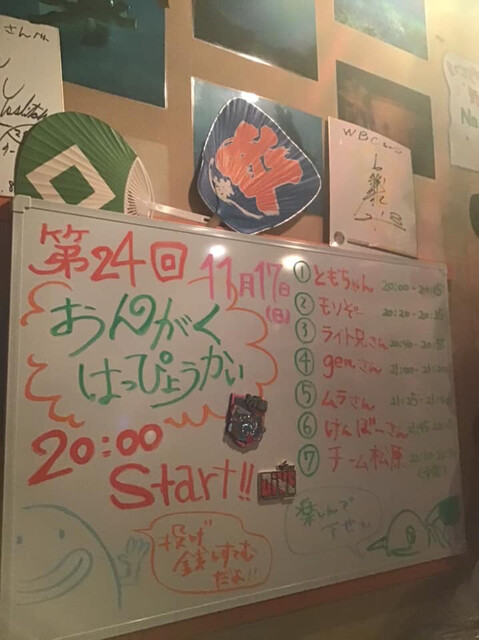 さんへ
WBC
No
第24回
11月17日
(日)
おんがく
はっぴょうかい
20:00
Start!!
① ともちゃん 20:00-20:15
② モリゾー 20:20-20:35
③ ライト兄さん 20:40-20:55
④ genさん 21:00-21:20
⑤ ムラさん 21:25-21:
⑥ けんぼーさん
⑦ チーム松原
投げ
銭しすてむ
だよ!!
楽しんで